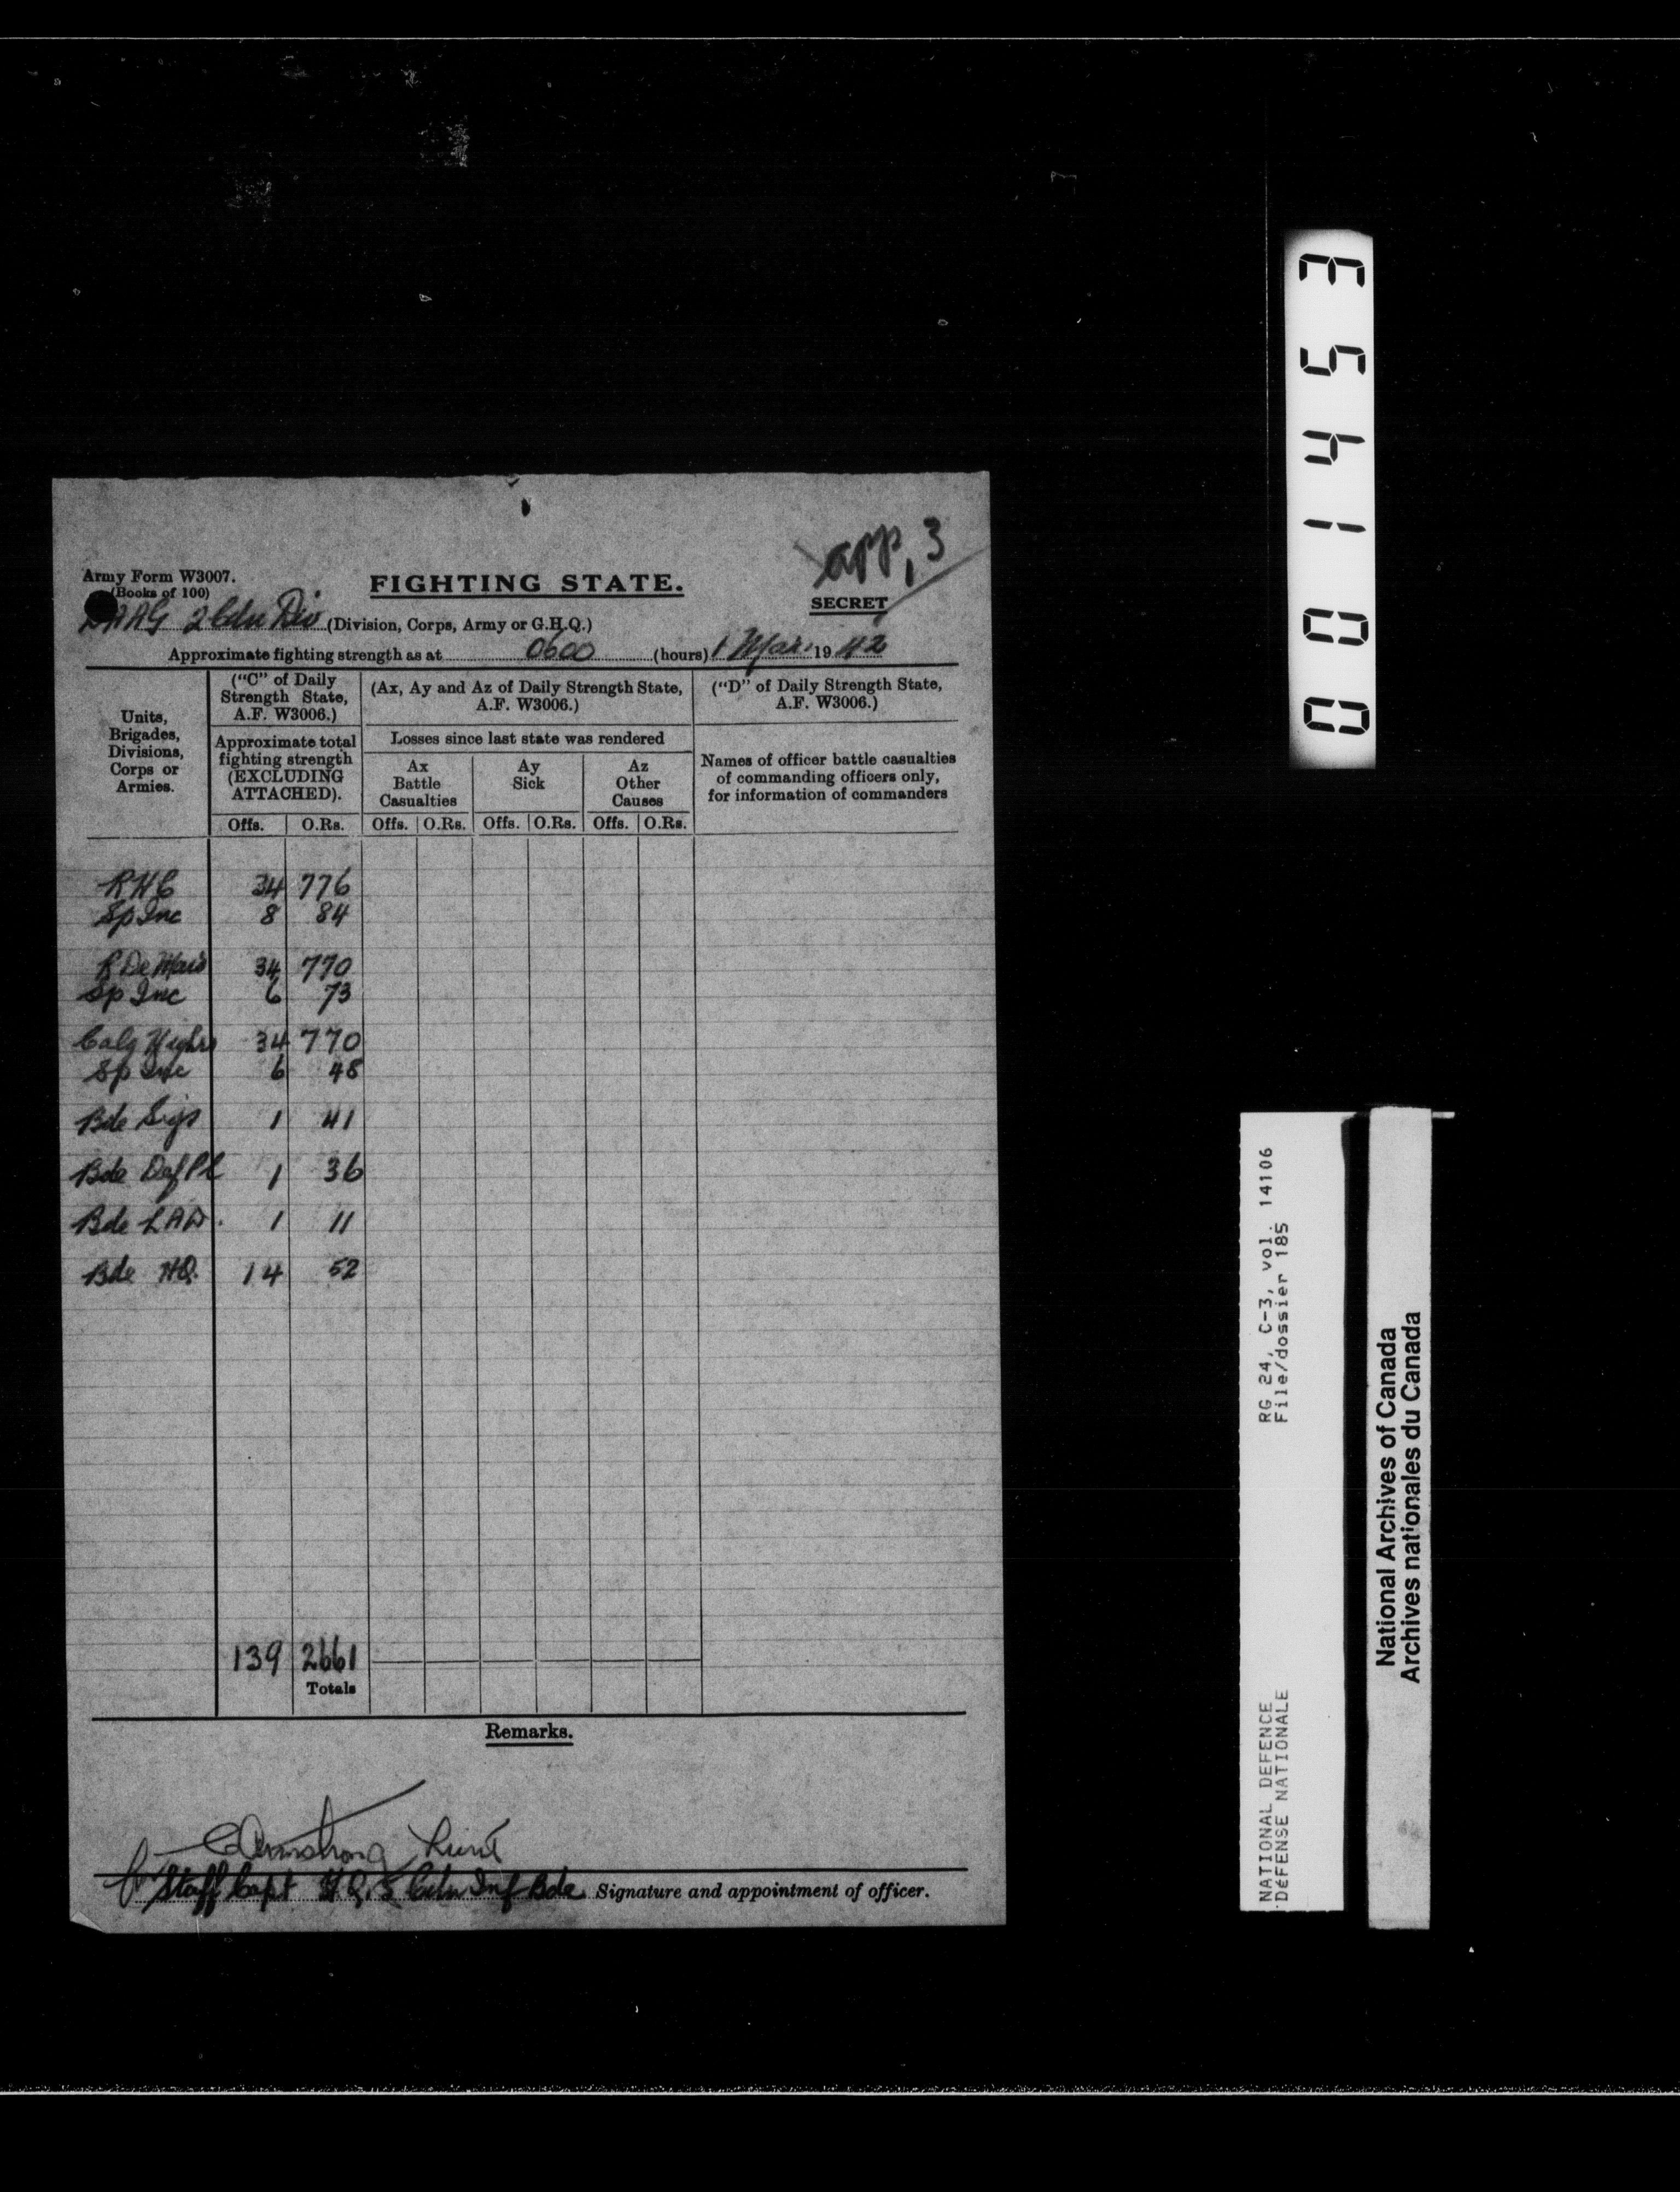 app, 3
Army Form W3007.
(Books of 100)
FIGHTING STATE.
SECRET
DAAG 2 Cdn Div (Division, Corps, Army or G.H.Q.)
Approximate fighting strength as at 0600 (hours) 1 Mar. 1942
Units, Brigades, Divisions, Corps or Armies.
("C" of Daily Strength State, A.F. W3006.)
(Ax, Ay and Az of Daily Strength State, A.F. W3006.)
("D" of Daily Strength State, A.F. W3006.)
Approximate total fighting strength (EXCLUDING ATTACHED).
Losses since last state was rendered
Ax Battle Casualties
Ay Sick
Az Other Causes
Names of officer battle casualties of commanding officers only, for information of commanders
Offs. O.Rs. Offs. O.Rs. Offs. O.Rs. Offs. O.Rs.
RHC 34 776
Sp Inc 8 84
R De Mais 34 770
Sp Inc 6 73
Calg Highrs 34 770
Sp Inc 6 48
Bde Sigs 1 41
Bde Def Pl 1 36
Bde LAD. 1 11
Bde HQ. 14 52
139 2661
Totals
Remarks.
Armstrong Lieut
for Staff Capt H.Q. 5 Cdn Inf Bde Signature and appointment of officer.
001453
RG 24, C-3, vol. 14106
File/dossier 185
NATIONAL DEFENCE
DéFENSE NATIONALE
National Archives of Canada
Archives nationales du Canada